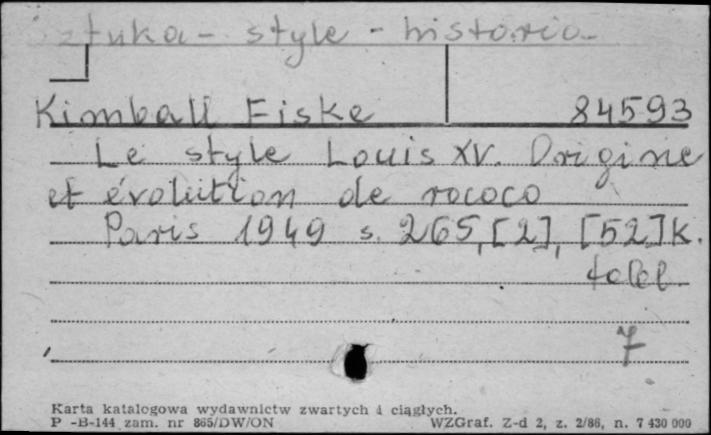 Sztuka - style - historia
Kimball Fiske 84593
Le style Louis XV. Origine
et évolution de rococo
Paris 1949 s. 265, [2], [52] k.
tabl.
7
Karta katalogowa wydawnictw zwartych i ciągłych.
P -B-144 zam. nr 865/DW/ON WZGraf. Z-d 2, z. 2/86, n. 7 430 000